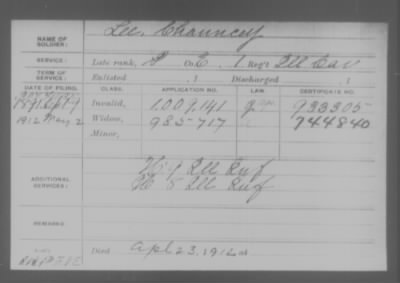 NAME OF SOLDIER: Lee, Chauncey
SERVICE: Late rank, P Co. E, 1 Reg't Ill Cav
TERM OF SERVICE: Enlisted , 1 Discharged , 1
DATE OF FILING. CLASS. APPLICATION NO. LAW. CERTIFICATE NO.
1891 Invalid, 1.009.141 933305
1912 May 2 Widow, 985-717 744840
Minor,
ADDITIONAL SERVICES: Ill Inf
Ill Inf
REMARKS:
Died Apl 23, 1912 at